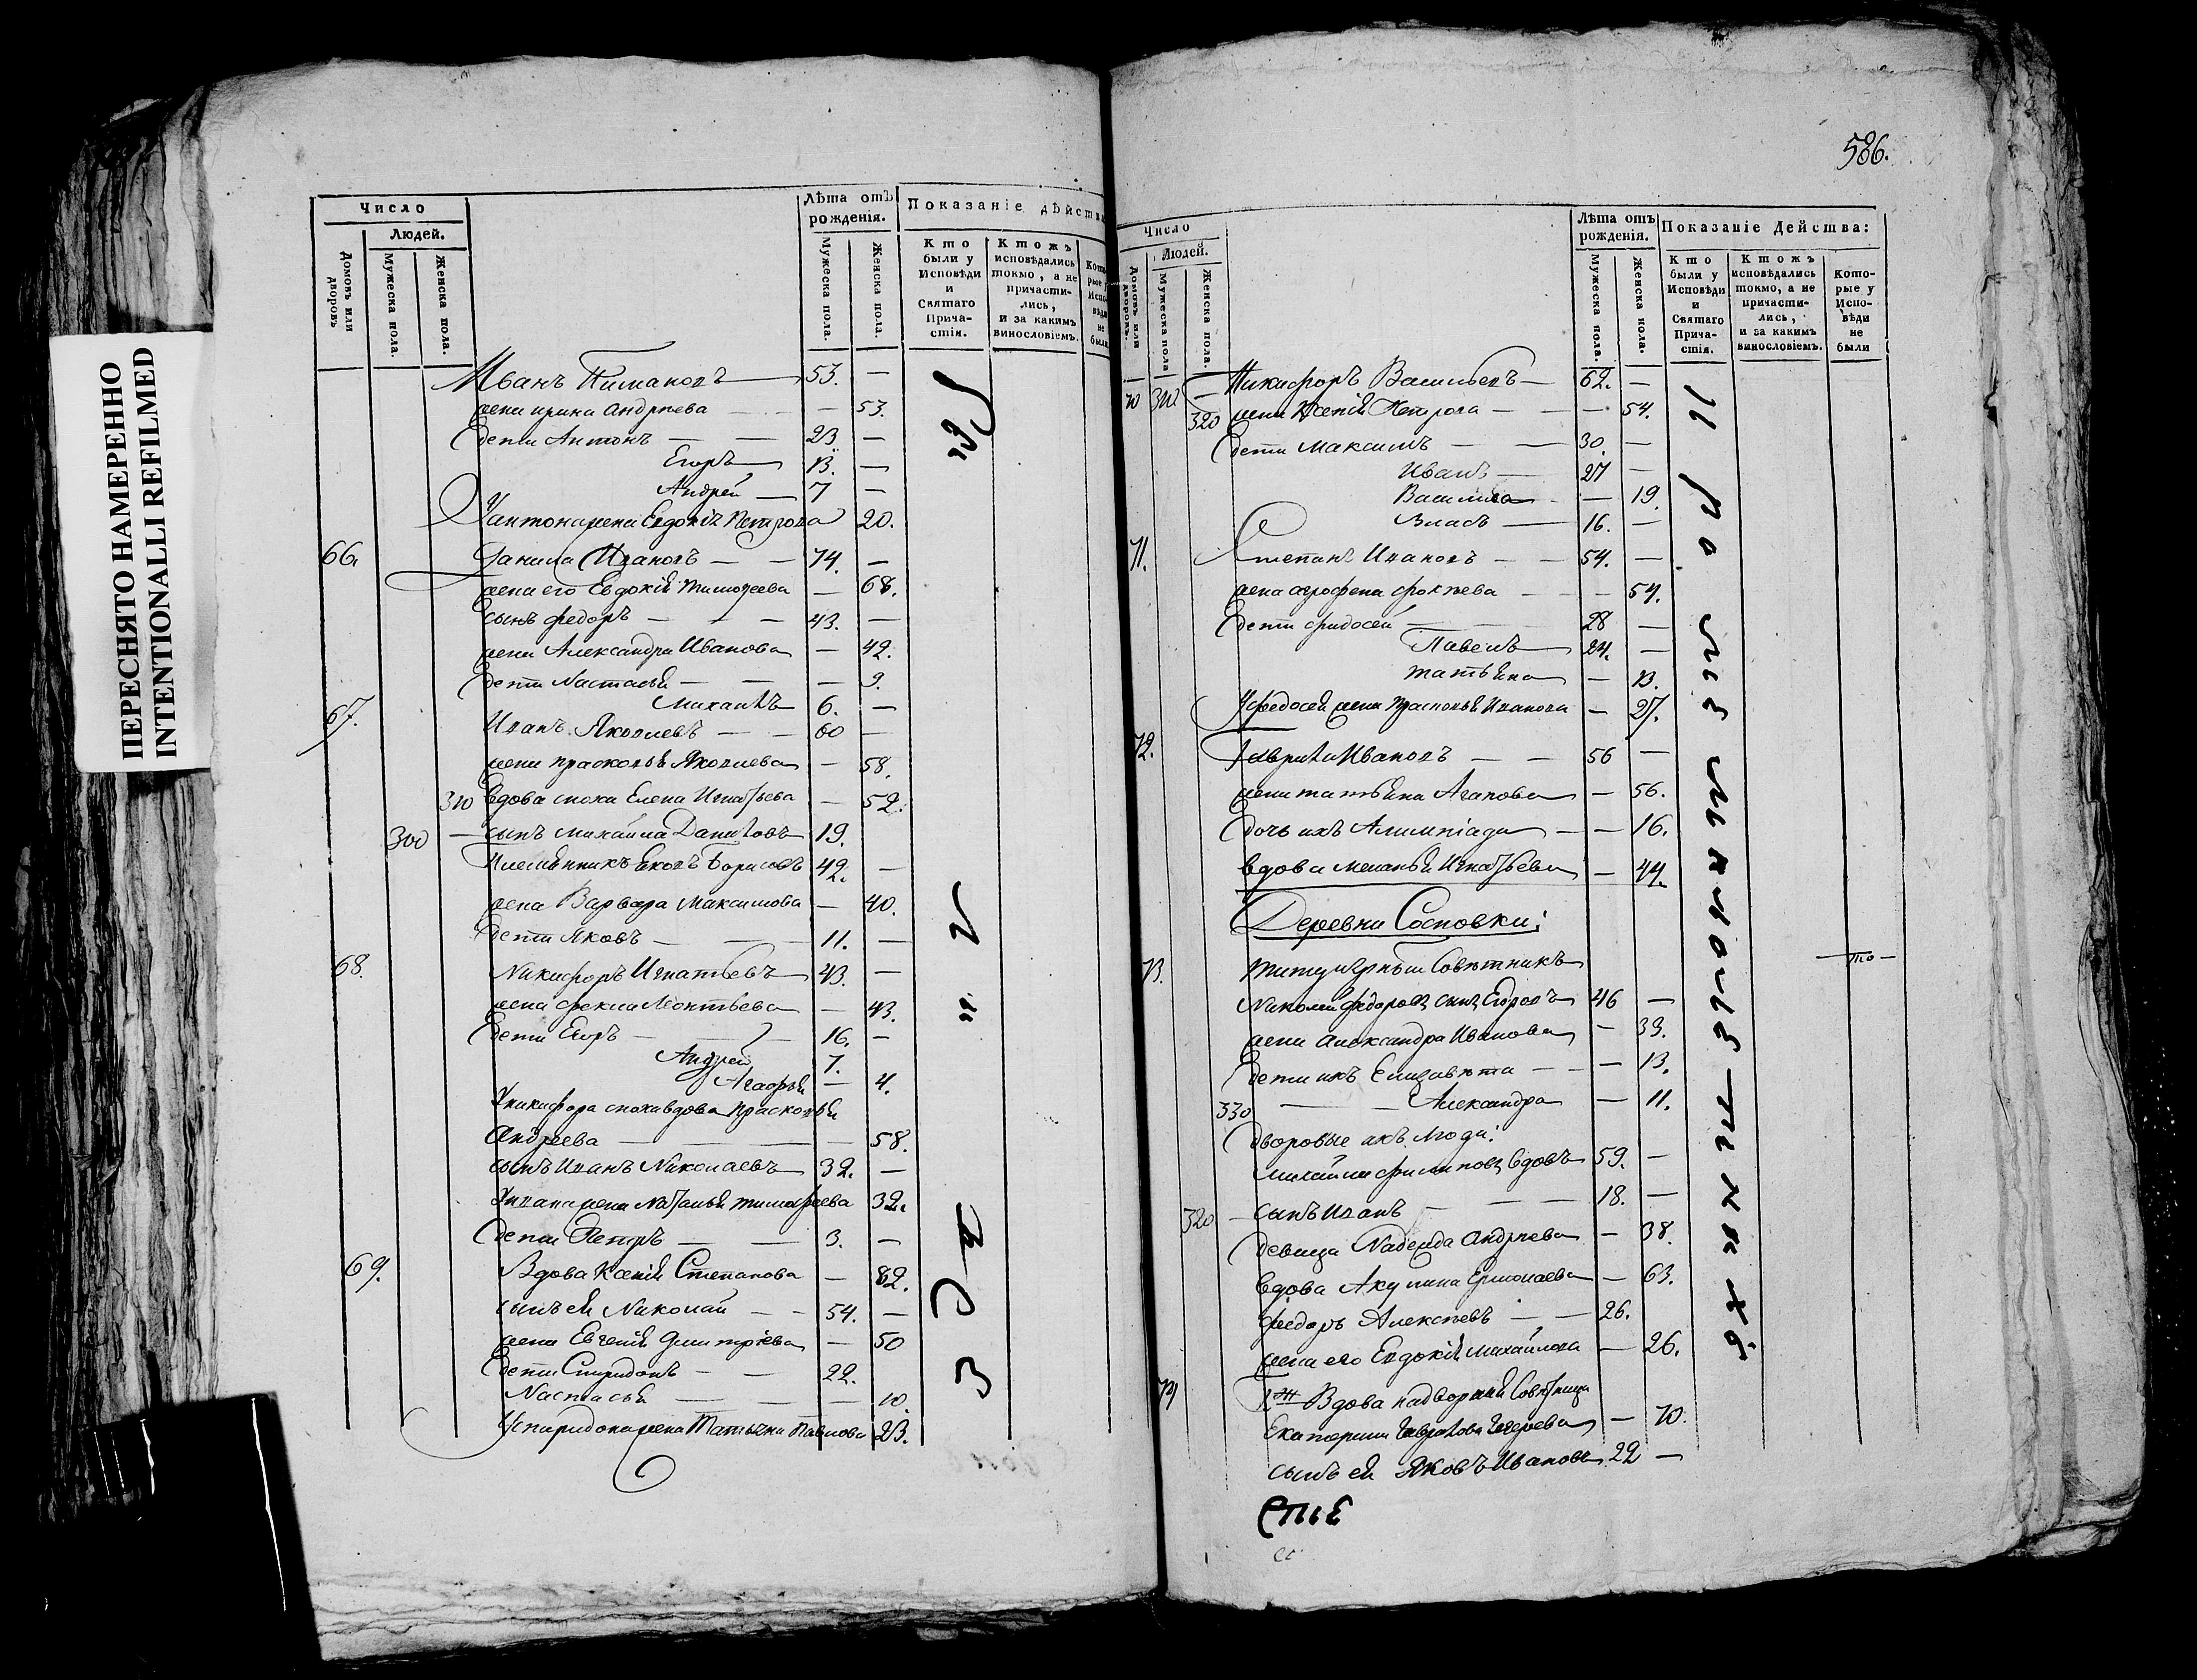 ПЕРЕСНЯТО НАМЕРЕННО
INTENTIONALLI REFILMED
Число
Людей.
Домовъ или дворовъ
Мужеска пола.
Женска пола.
Лѣта отъ рожденія.
Мужеска пола.
Женска пола.
Показаніе дѣйства
Кто были у Исповѣди и Святаго Прича-стія.
Ктожъ исповѣдались токмо, а не причасти-лись, и за какимъ винословіемъ.
Иванъ 53. —
жена ирина Андрѣева — 53.
дети Антонъ — 23 —
Егоръ 13. —
Андрей — 7 —
У антона жена Евдокія Петрова 20.
66. Данила Ивановъ — 74. —
жена его Евдокія Тимофеева — 68.
сынъ федоръ — 43. —
жена Александра Иванова — 42.
дети Настасья — 9.
Михаилъ 6. —
67. Иванъ Яковлевъ — 60 —
жена прасковья Яковлева — 58.
310 вдова сноха Елена Игнатьева — 52.
300 — сынъ михайла Даниловъ 19.
Племянникъ Борисовъ 42. —
жена Варвара Максимова — 40.
дети Яковъ — 11. —
68. Никифоръ Игнатьевъ 43. —
жена фекла Леонтьева — 43.
дети Егоръ — 16. —
Андрей 7.
Агафья — 4.
У никифора сноха вдова прасковья
Андреева — 58.
сынъ Иванъ Николаевъ 32. —
У ивана жена Наталья тимофеева 32.
дети Петръ — 3. —
69. Вдова Ксенія Степанова — 82.
сынъ ея Николай — 54. —
жена Евгенія Дмитріева — 50
дети Спиридонъ — 22.
Настасья — 10.
У спиридона жена Татьяна Павлова 23.
586.
Число
Людей.
Домовъ или дворовъ.
Мужеска пола
Женска пола.
Лѣта отъ рожденія.
Мужеска пола.
Женска пола.
Показаніе Дейсшва:
Кто были у Исповѣди и Святаго Прича-стія.
Ктожъ исповѣдались токмо, а не причасти-лись, и за какимъ винословіемъ.
Кото-рые у Испо-вѣди не были
70 310 — Никифоръ Васильевъ — 62. —
320 жена Ксенія Петрова — 54.
дети Максимъ — 30. —
Иванъ — 27 —
Василиса — 19.
Власъ — 16. —
71. Степанъ Ивановъ — 54. —
жена агрофена — 54.
дети фидосей — 28 —
Павелъ 24. —
татьяна — 13.
У федосея жена Прасковья Иванова — 27.
72. Гаврила Ивановъ — 56 —
жена татьяна Агапова — 56.
дочь ихъ Алимпіада — 16.
вдова меланья Игнатьева — 44.
Деревни Сосновки:
73. титулярный Совѣтникъ
Николай федоровъ сынъ Егоровъ 46 —
жена александра Иванова — 39.
дети ихъ Елизавета — 13.
330 — Александра — 11.
дворовые ихъ люди:
михайла филиповъ вдовъ 59. —
320 — сынъ Иванъ — 18. —
девица Надежда Андреева — 38.
вдова Акулина Ермолаева — 63.
федоръ Алексѣевъ — 26.
жена его Евдокія михайлова — 26.
74 Вдова надворная Совѣтница
Екатерина Гаврилова — 70.
сынъ ея Яковъ Ивановъ 22 —